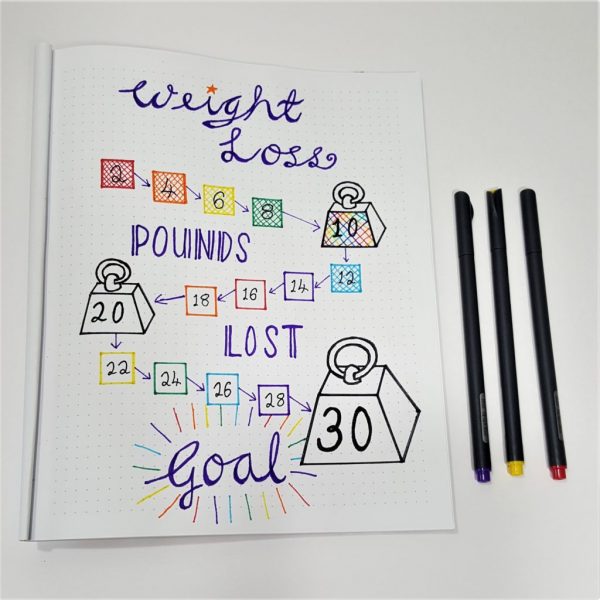 Weight
Loss
2 4 6 8 10
POUNDS
12
14
16
18
20
LOST
22 24 26 28 30
Goal